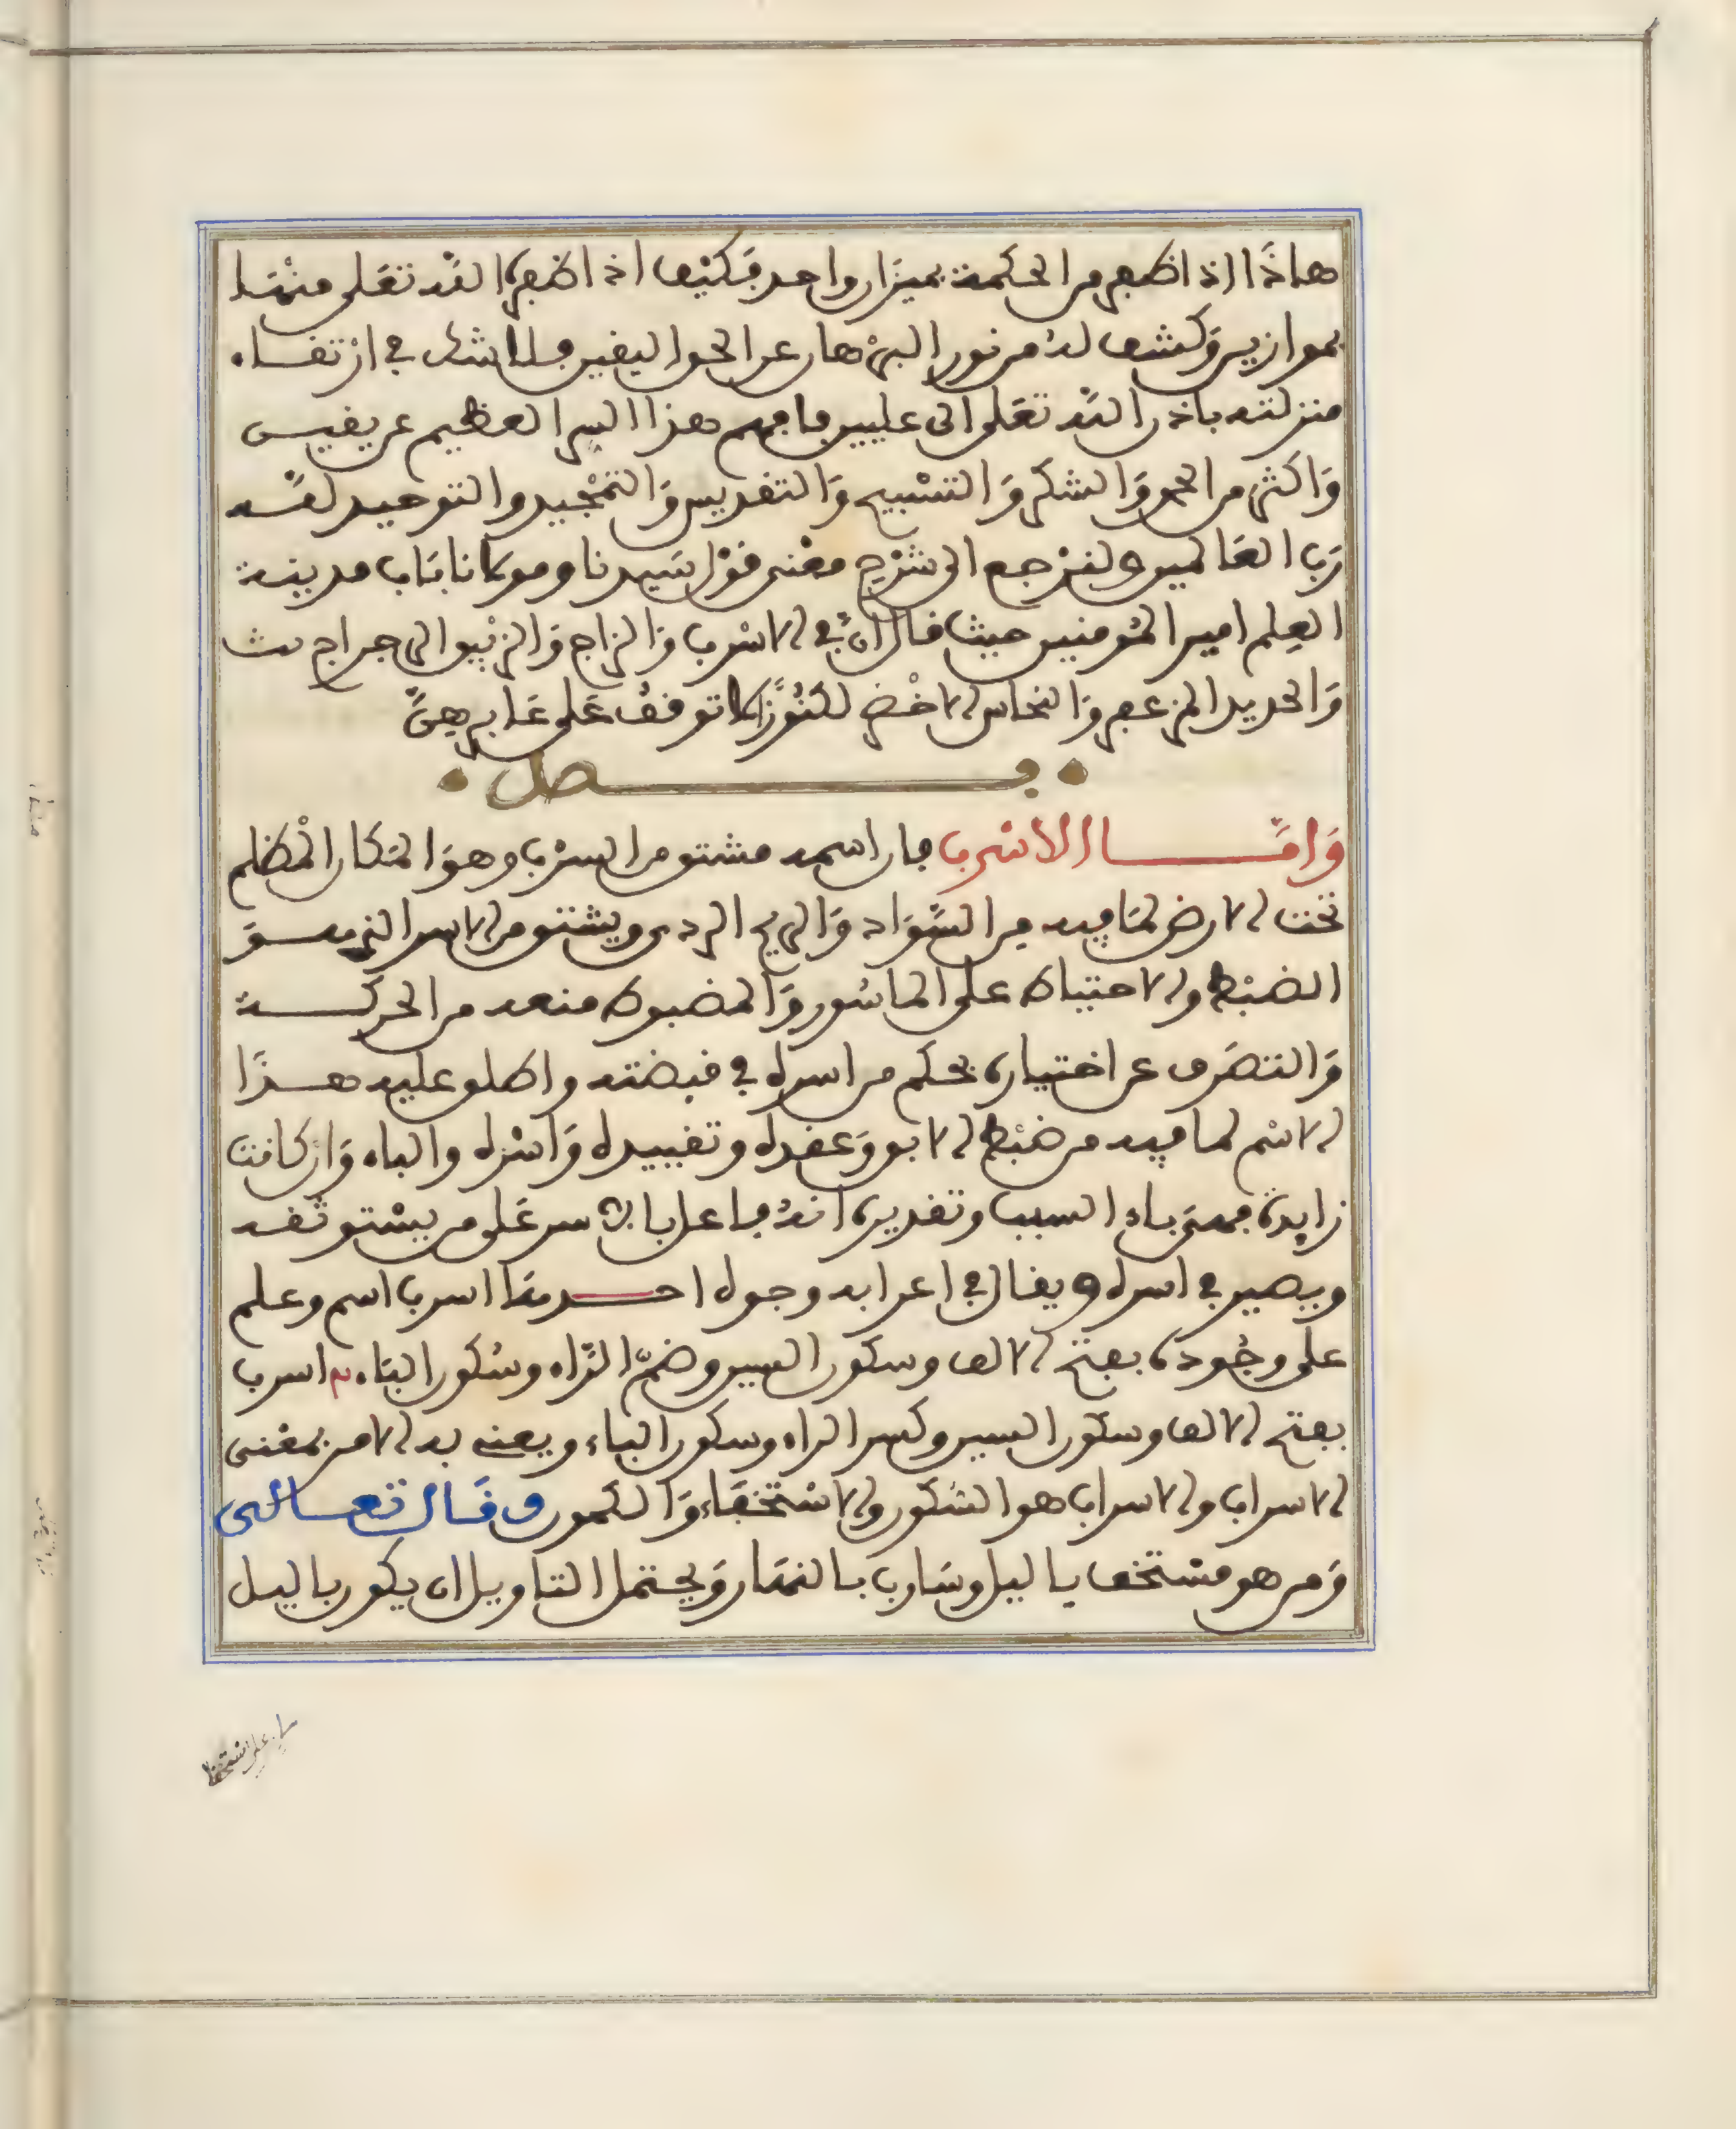 هاذا اذا ظفر من الحكمة بميزان واحد فكيف اذا اظفره الله تعلى منها
بموازين وكشف له من نور البرهان عن الحق اليقين فلا شك في ارتقاء
منزلته باذن الله تعلى الى عليين فافهم هذا السر العظيم عن يقين
وَاكثر من الحمد وَالشكر وَالتسْبيح وَالتقديس وَالتمْجيد والتوحيد لله
رَب العَالمين ولنرْجع الى شرْح معْنى قوْل سَيدنا ومولانا بَاب مدينة
العِلم امير المُومنين حيث قال انّ في الاسْرب وَالزاج وَالزيْبق الرجراج
وَالحديد المزعفر وَالنحاس الاخْضر لكنُوزًا لا توقفُ عَلى غَابرهِنّ
فصل
وَامَّا الاسْرب فان اسمه مشتق من السرْب وهوَ المَكان المْظلم
تحت الارض لمَا فيه من السَّوَاد وَالريح الردي ويشتق من الاسر الذي هو
الضبْط والاحتياط على الماسُور وَالمضبوط منعه من الحركة
وَالتصَرف عن اختياره بحكم من اسره في قبضته واطلق عليه هذَا
الاسْم لما فيه من ضبْط الابق وَعقده وتقييده وَاسْره والباء وَان كانت
زايدة فهىَ باء السبب وتقديره انهُ فاعل بالاسر عَلى من يسْتوثقه
ويصير في اسره ويقال في اعرابه وجوه احدهَا اسرب اسم وعلم
على وجُوده بفتح الالف وسكون السين وضمّ الرَّاء وسُكون البَاء اسرب
بفتح الالف وسكون السين وكسر الراء وسكون الباء ويعنى به الامر بمعْنى
الاسراب والاسراب هو السُكون والاسْتخفَاء وَالكمون وقَال تعالى
وَمن هو مسْتخف باليل وسَارب بالنهَار وَيحتمل التاويل ان يكون باليل